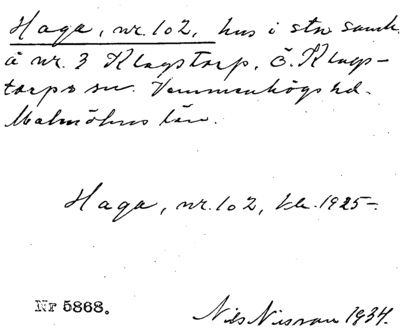 Haga, nr. 102, hus i stn samh.
å nr. 3 Klagstorp, Ö. Klags-
torps sn. Vemmenhögs hd.
Malmöhus län.
Haga, nr. 102, 1925-.
Nr 5868.
Nils Nilsson 1934.